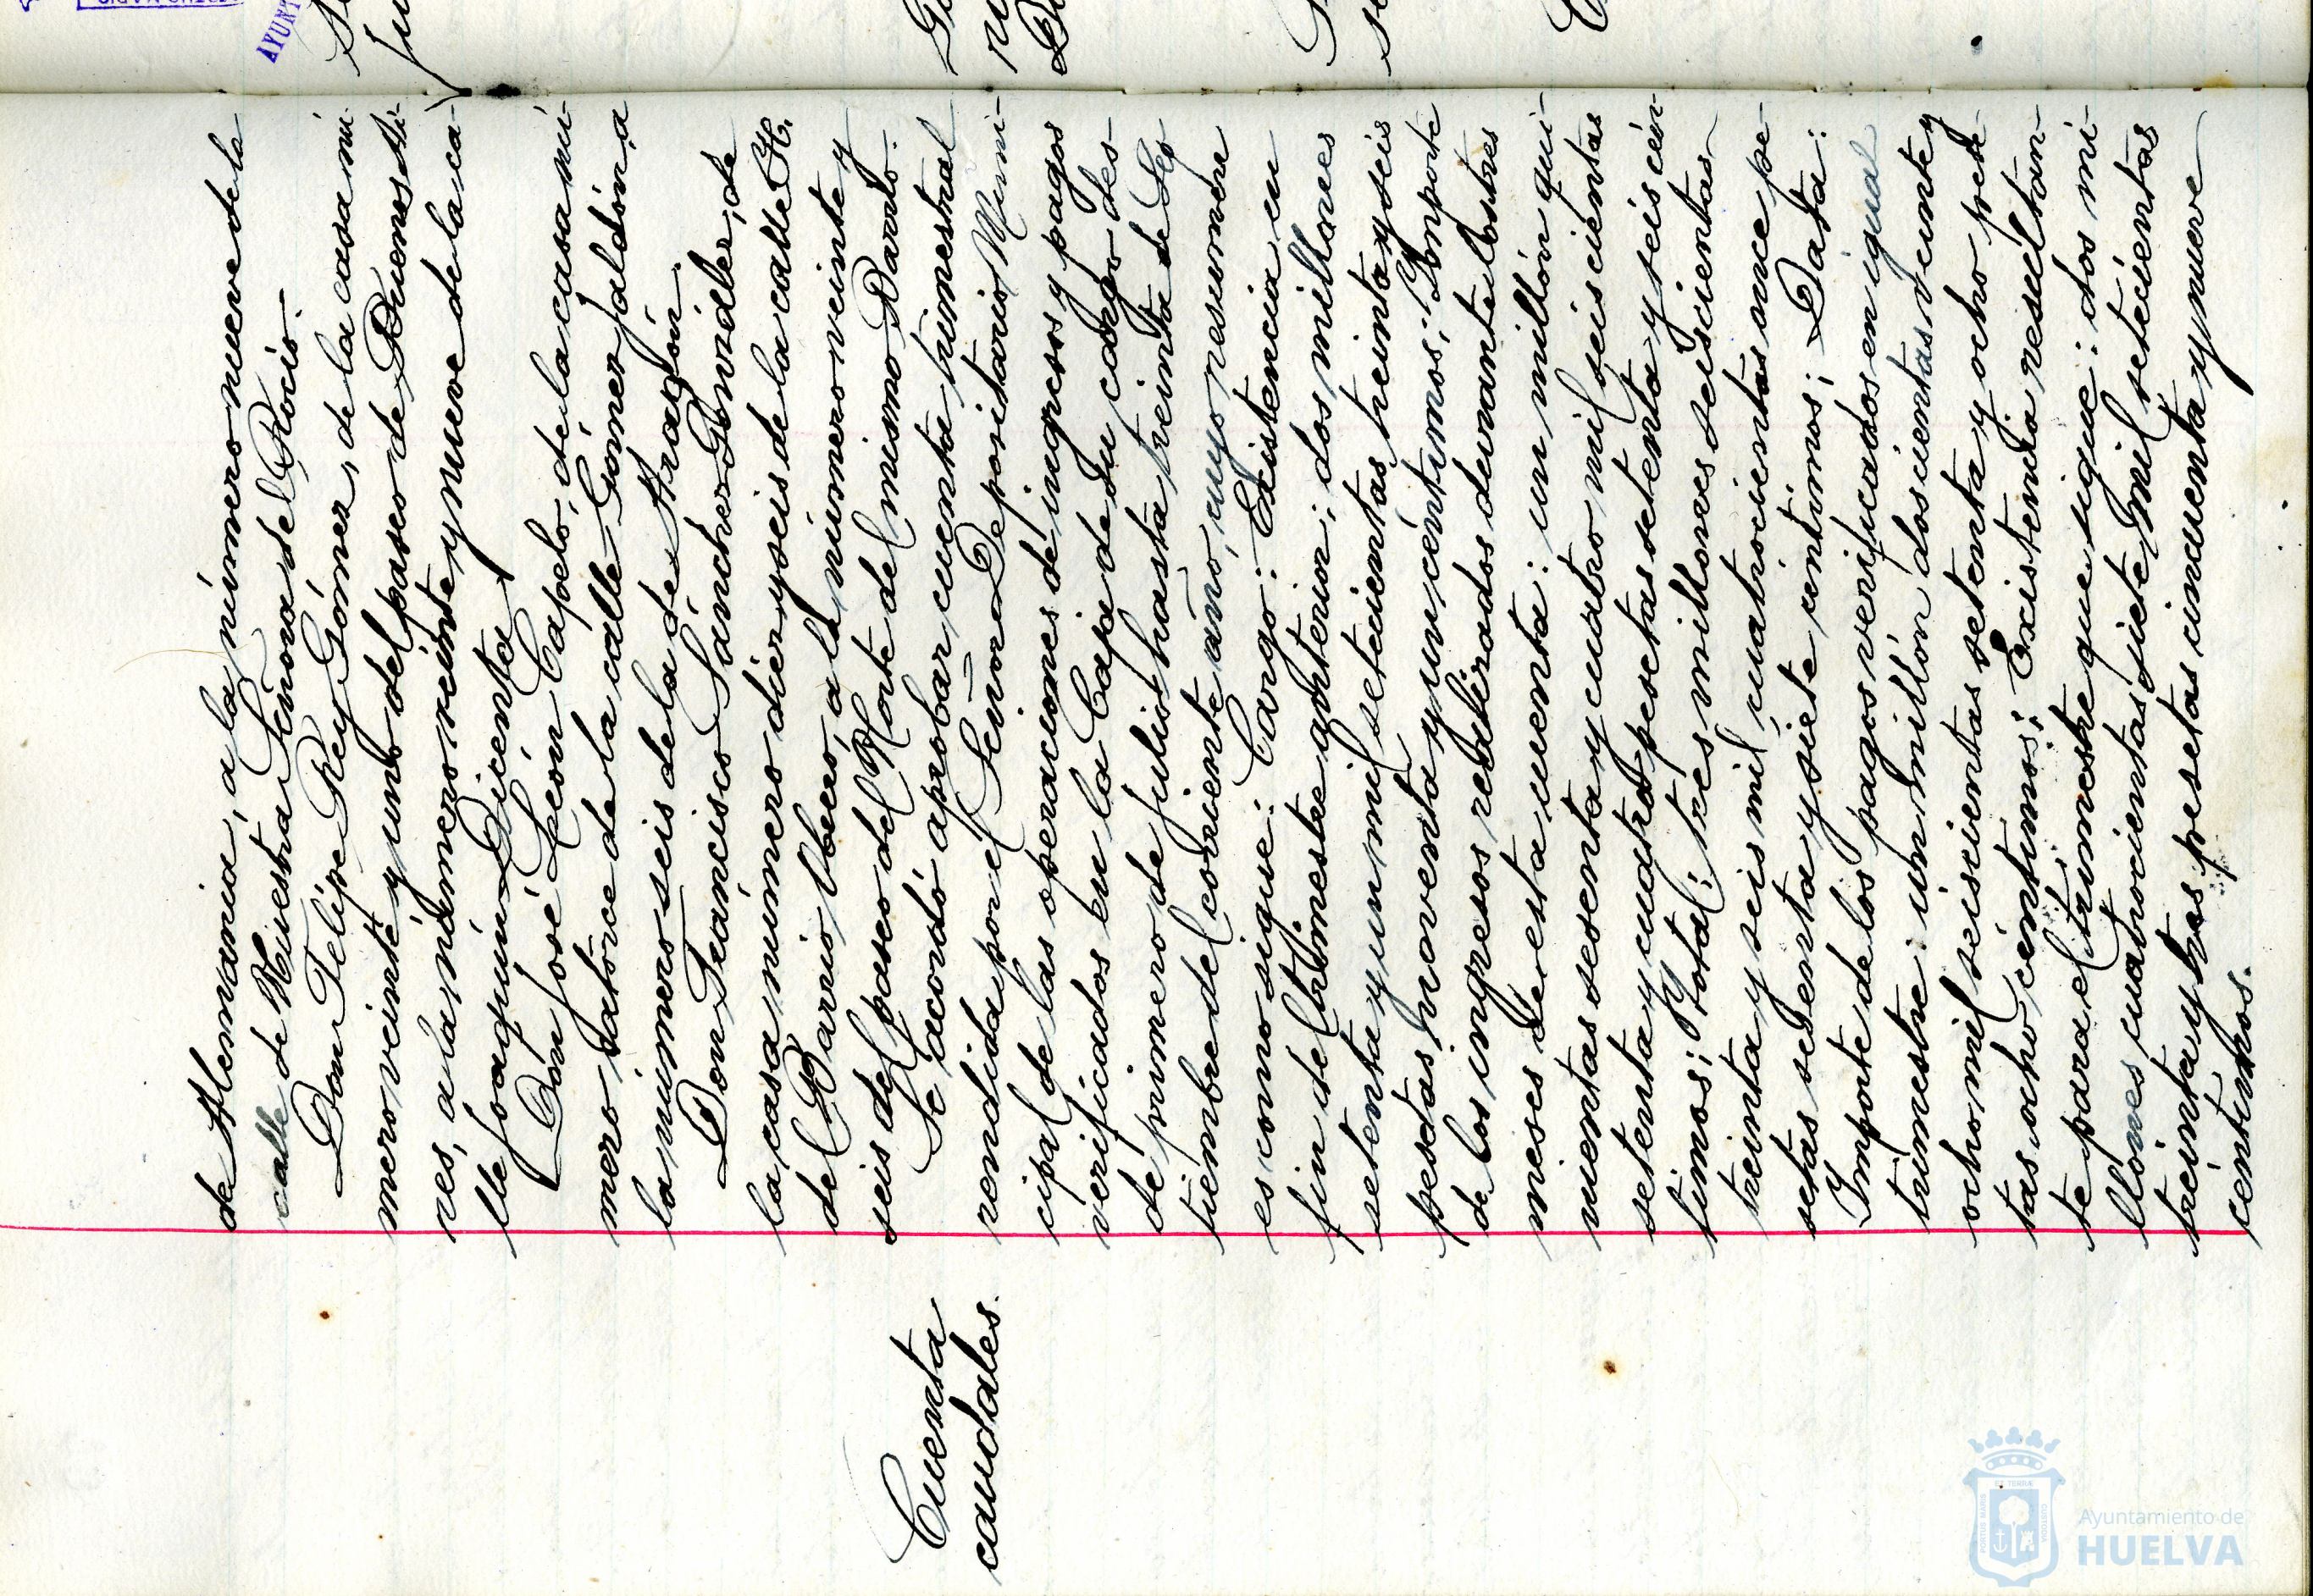 de Alemania, a la número nueve de la
calle de Nuestra Señora del Rocío.-
Don Felipe Rey Gómez, de la casa nú-
mero veinte y uno del paseo de Buenos Ai-
res, a la número veinte y nueve de la ca-
lle Joaquín Dicenta.
Don José León Capelo, de la casa nú-
mero catorce de la calle Gómez Jaldón, a
la número seis de la de Aragón.
Don Francisco Sánchez González, de
la casa número diez y seis de la calle H.
del Barrio Obrero, a la número veinte y
seis del paseo del Norte del mismo Barrio.-
Cuenta
caudales.
Se acordó aprobar cuenta trimestral
rendida por el Señor Depositario Muni-
cipal de las operaciones de ingresos y pagos
verificados en la Caja de su cargo des-
de primero de julio hasta treinta de Sep
tiembre del corriente año, cuyo resumen
es como sigue: Cargo: Existencia en
fin del trimestre anterior; dos millones
setenta y un mil setecientas treinta y seis
pesetas noventa y un céntimos; Importe
de los ingresos realizados durante los tres
meses de esta cuenta: un millón qui-
nientas sesenta y cuatro mil seiscientas
setenta y cuatro pesetas setenta y seis cén-
timos; Total: tres millones seiscientas
treinta y seis mil cuatrocientas once pe-
setas sesenta y siete céntimos; Data:
Importe de los pagos verificados en igual
trimestre: un millón doscientas veinte y
ocho mil seiscientas setenta y ocho pese
tas ocho céntimos; Existencia resultan-
te para el trimestre que sigue: dos mi-
llones cuatrocientas siete mil setecientas
treinta y tres pesetas cincuenta y nueve
céntimos.
AYUNT
Ayuntamiento de
HUELVA